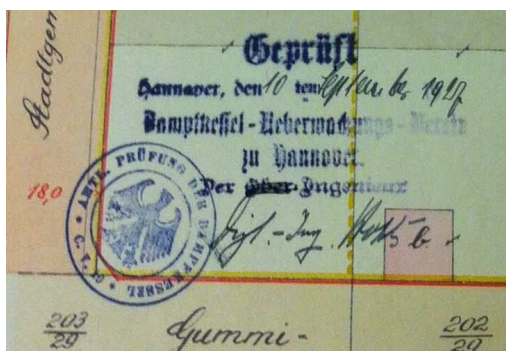 Stadtgem
Geprüft
Hannover, den 10 ten September 1927
Dampfkessel-Ueberwachungs-Verein
zu Hannover.
Der Ober-Ingenieur
Dipl.-Ing.
b.
AMTL. PRÜFUNG DER DAMPFKESSEL
18,0
203
29
Gummi-
202
29